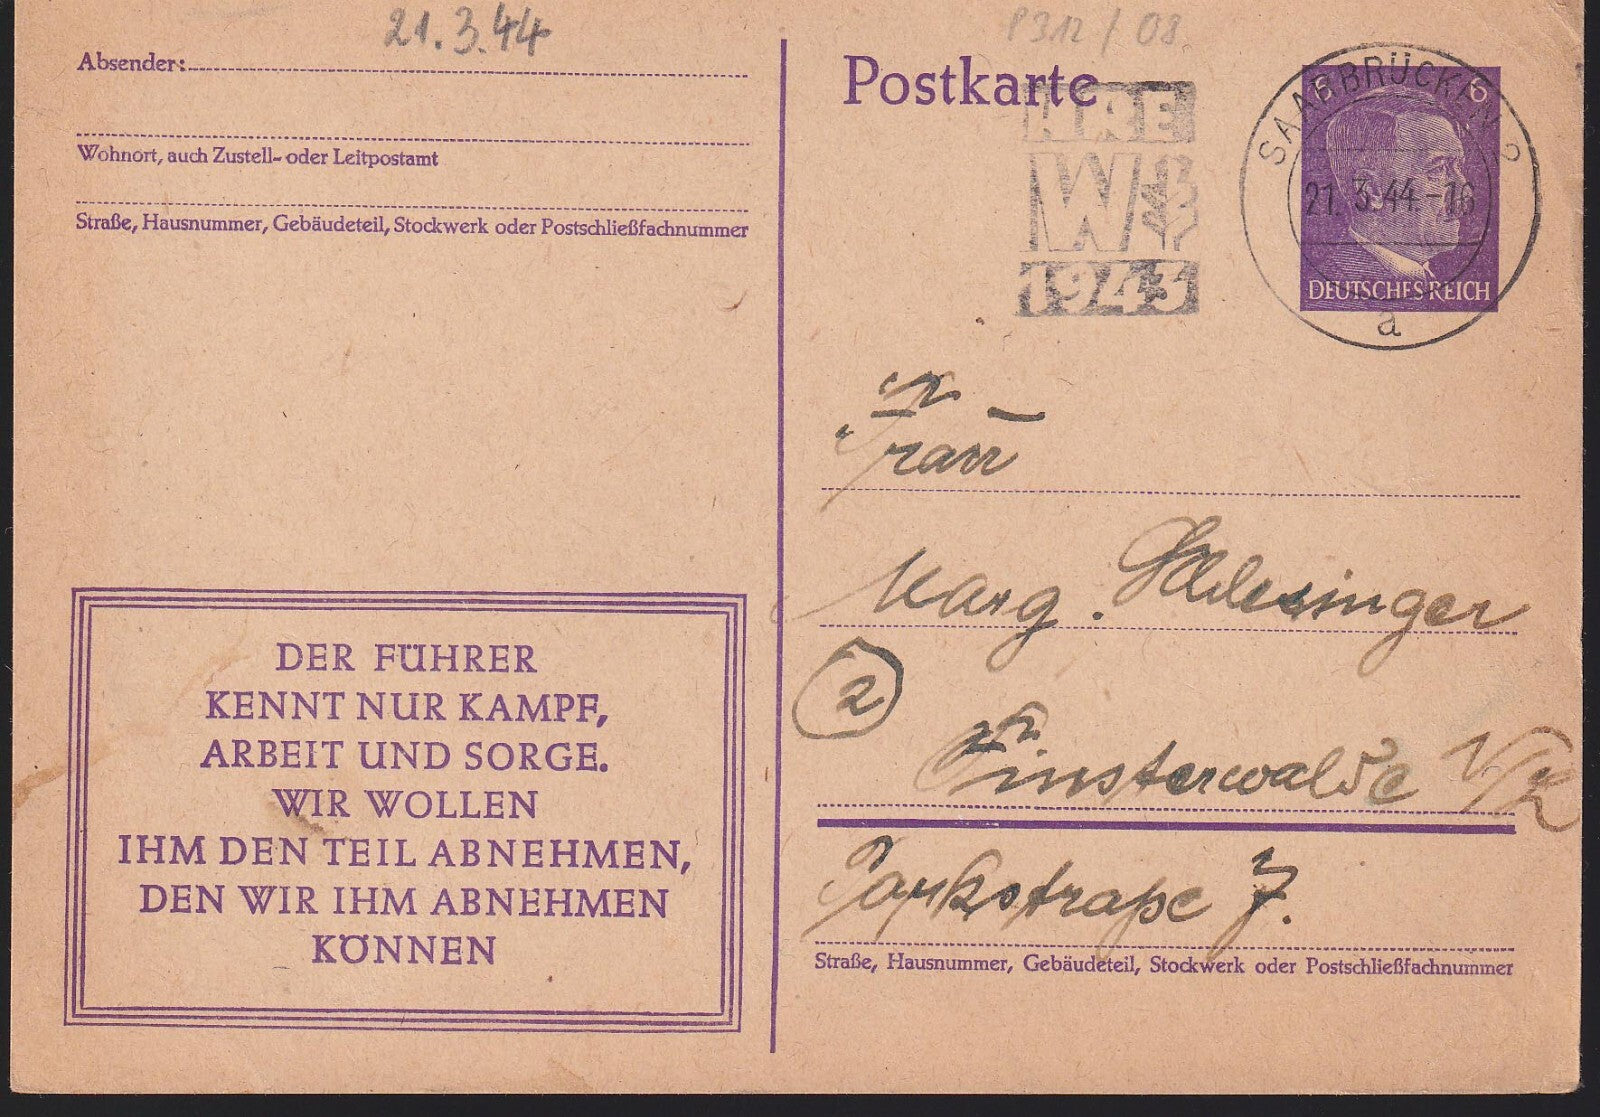 21.3.44
P312/08
Absender:
Wohnort, auch Zustell- oder Leitpostamt
Straße, Hausnummer, Gebäudeteil, Stockwerk oder Postschließfachnummer
Postkarte
W
1943
SAARBRÜCKEN 2
21.3.44.-16
a
6
DEUTSCHES REICH
Frau
Marg. Schlesinger
2
Finsterwalde N/L
Parkstraße 7.
Straße, Hausnummer, Gebäudeteil, Stockwerk oder Postschließfachnummer
DER FÜHRER
KENNT NUR KAMPF,
ARBEIT UND SORGE.
WIR WOLLEN
IHM DEN TEIL ABNEHMEN,
DEN WIR IHM ABNEHMEN
KÖNNEN